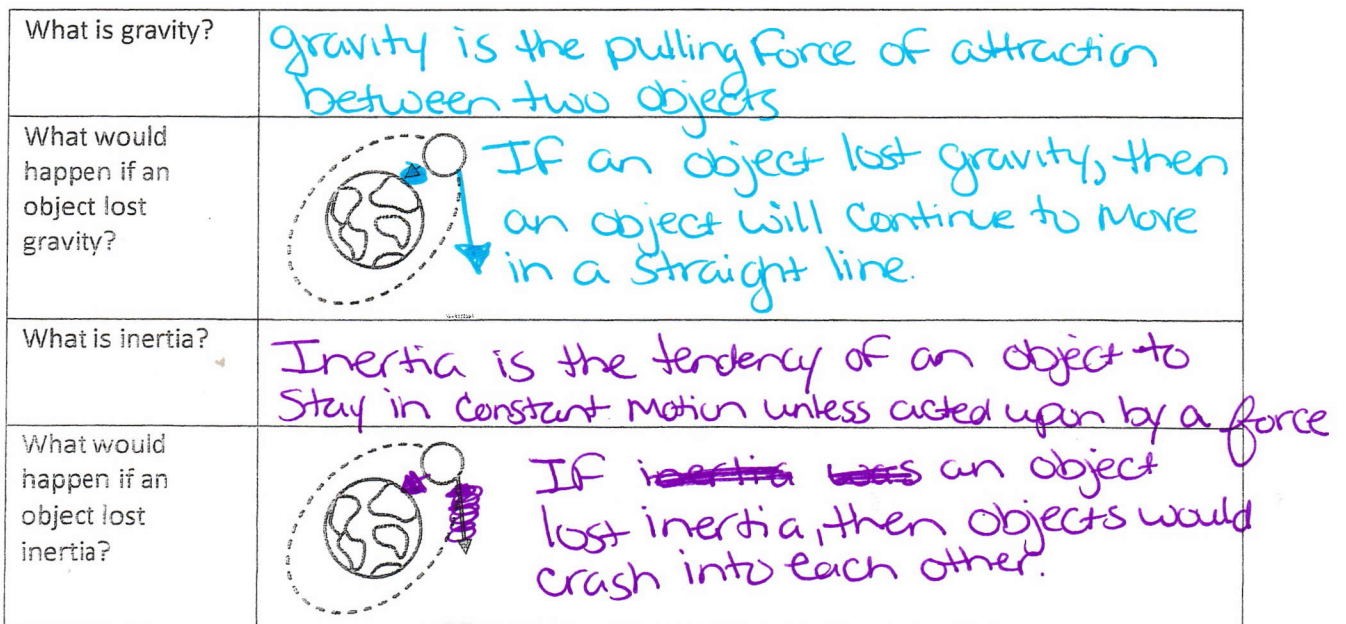 What is gravity?
gravity is the pulling force of attraction
between two objects
What would
happen if an
object lost
gravity?
If an object lost gravity, then
an object will continue to move
in a straight line.
What is inertia?
Inertia is the tendency of an object to
Stay in constant motion unless acted upon by a force
What would
happen if an
object lost
inertia?
If inertia was an object
lost inertia, then objects would
crash into each other.